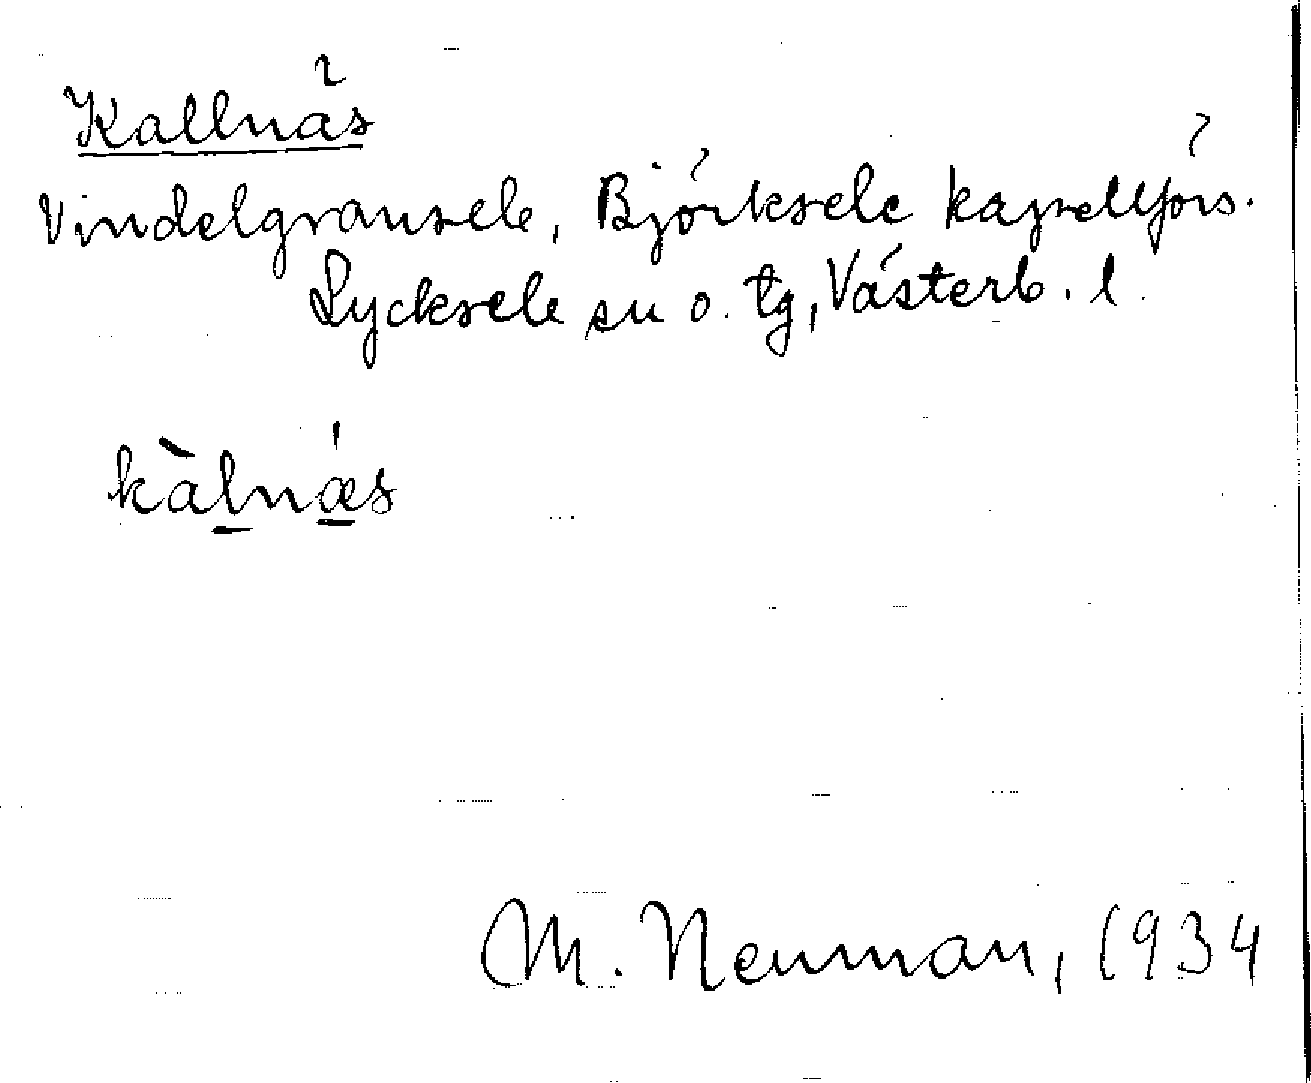 Kallnäs
Vindelgransele, Björksele kapellförs.
Lycksele sn o. tg, Västerb. l.
kàlnæ̀s
M. Neuman, 1934